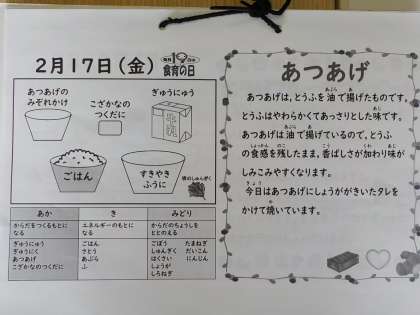 2月17日(金)
毎月19日は
食育の日
あつあげの
みぞれかけ
こざかなの
つくだに
ぎゅうにゅう
牛乳
ごはん
すきやき
ふうに
旬のしゅんぎく
あか
き
みどり
からだをつくるもとに
なる
エネルギーのもとに
なる
からだのちょうしを
ととのえる
ぎゅうにゅう
ぎゅうにく
あつあげ
こざかなのつくだに
ごはん
さとう
あぶら
ふ
ごぼう たまねぎ
しゅんぎく だいこん
はくさい にんじん
しょうが
しろねぎ
あつあげ
あつあげは，とうふを油で揚げたものです。
とうふはやわらかくてあっさりとした味です。
あつあげは油で揚げているので，とうふ
の食感を残したまま，香ばしさが加わり味が
しみこみやすくなります。
今日はあつあげにしょうががきいたタレを
かけて焼いています。